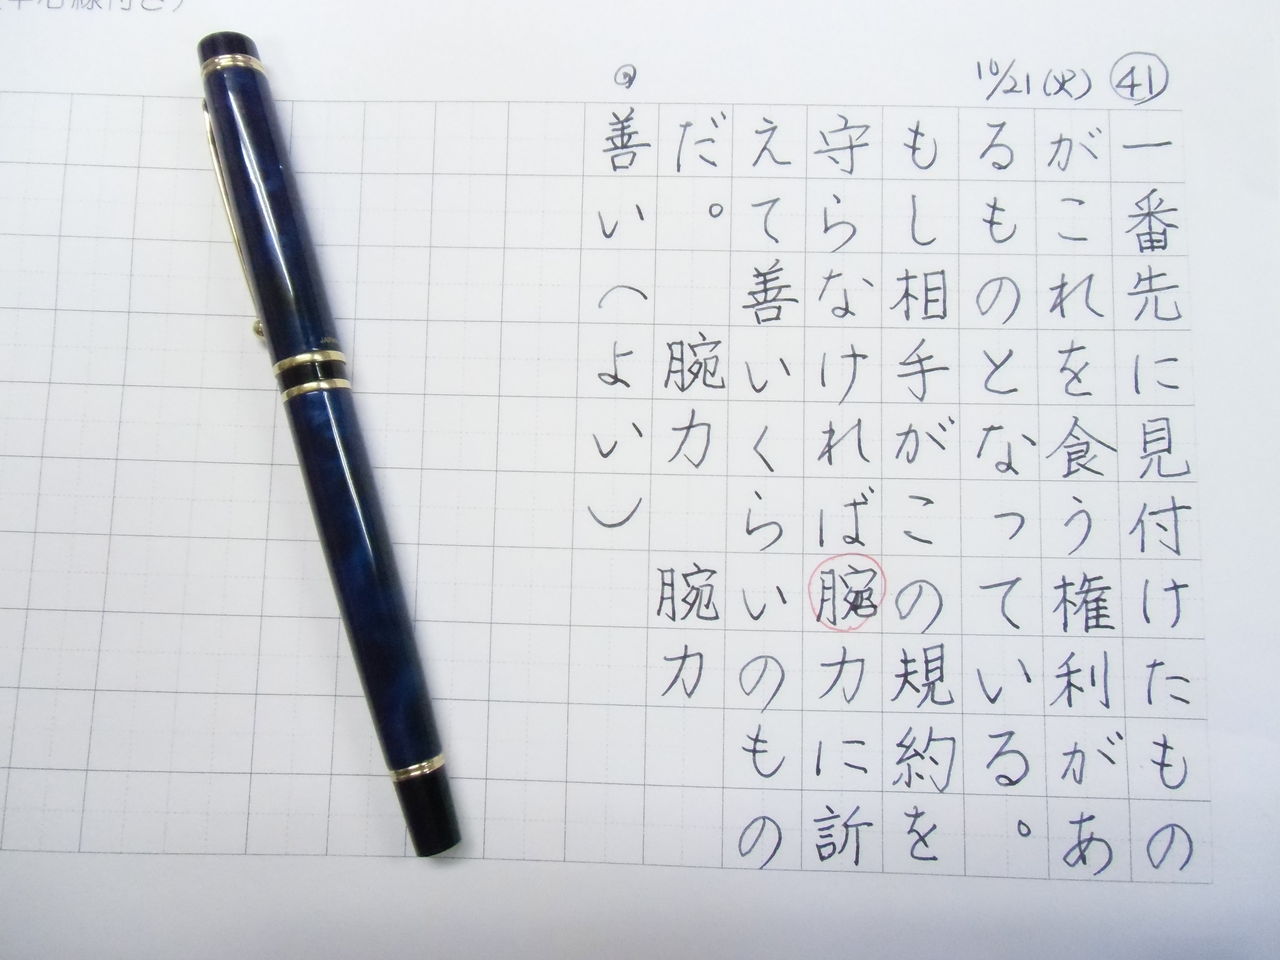 10/21(火) ㊶
一番先に見付けたもの
がこれを食う権利があ
るものとなっている。
もし相手がこの規約を
守らなければ腕力に訴
えて善いくらいのもの
だ。 腕力 腕力
善い(よい)